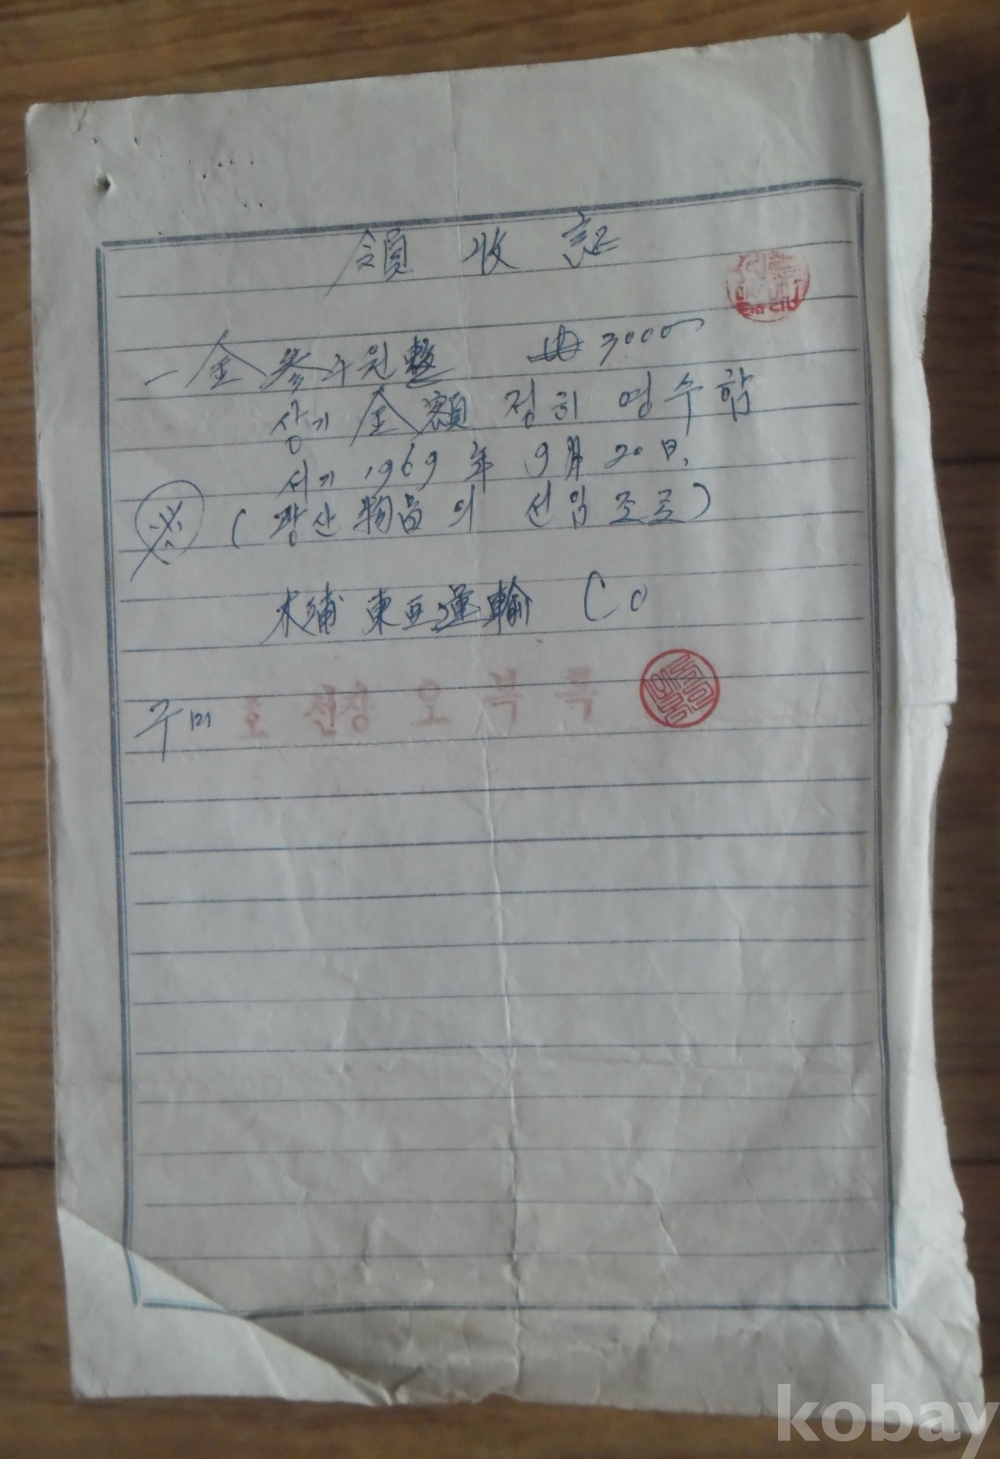 領收証
一金參千원整 ₩3000
상기 金額 정히 영수함
서기 1969年 9月 20日.
(광산物品의 선임조로)
木浦 東亞運輸 Co
구미호 선장 오복록
kobay